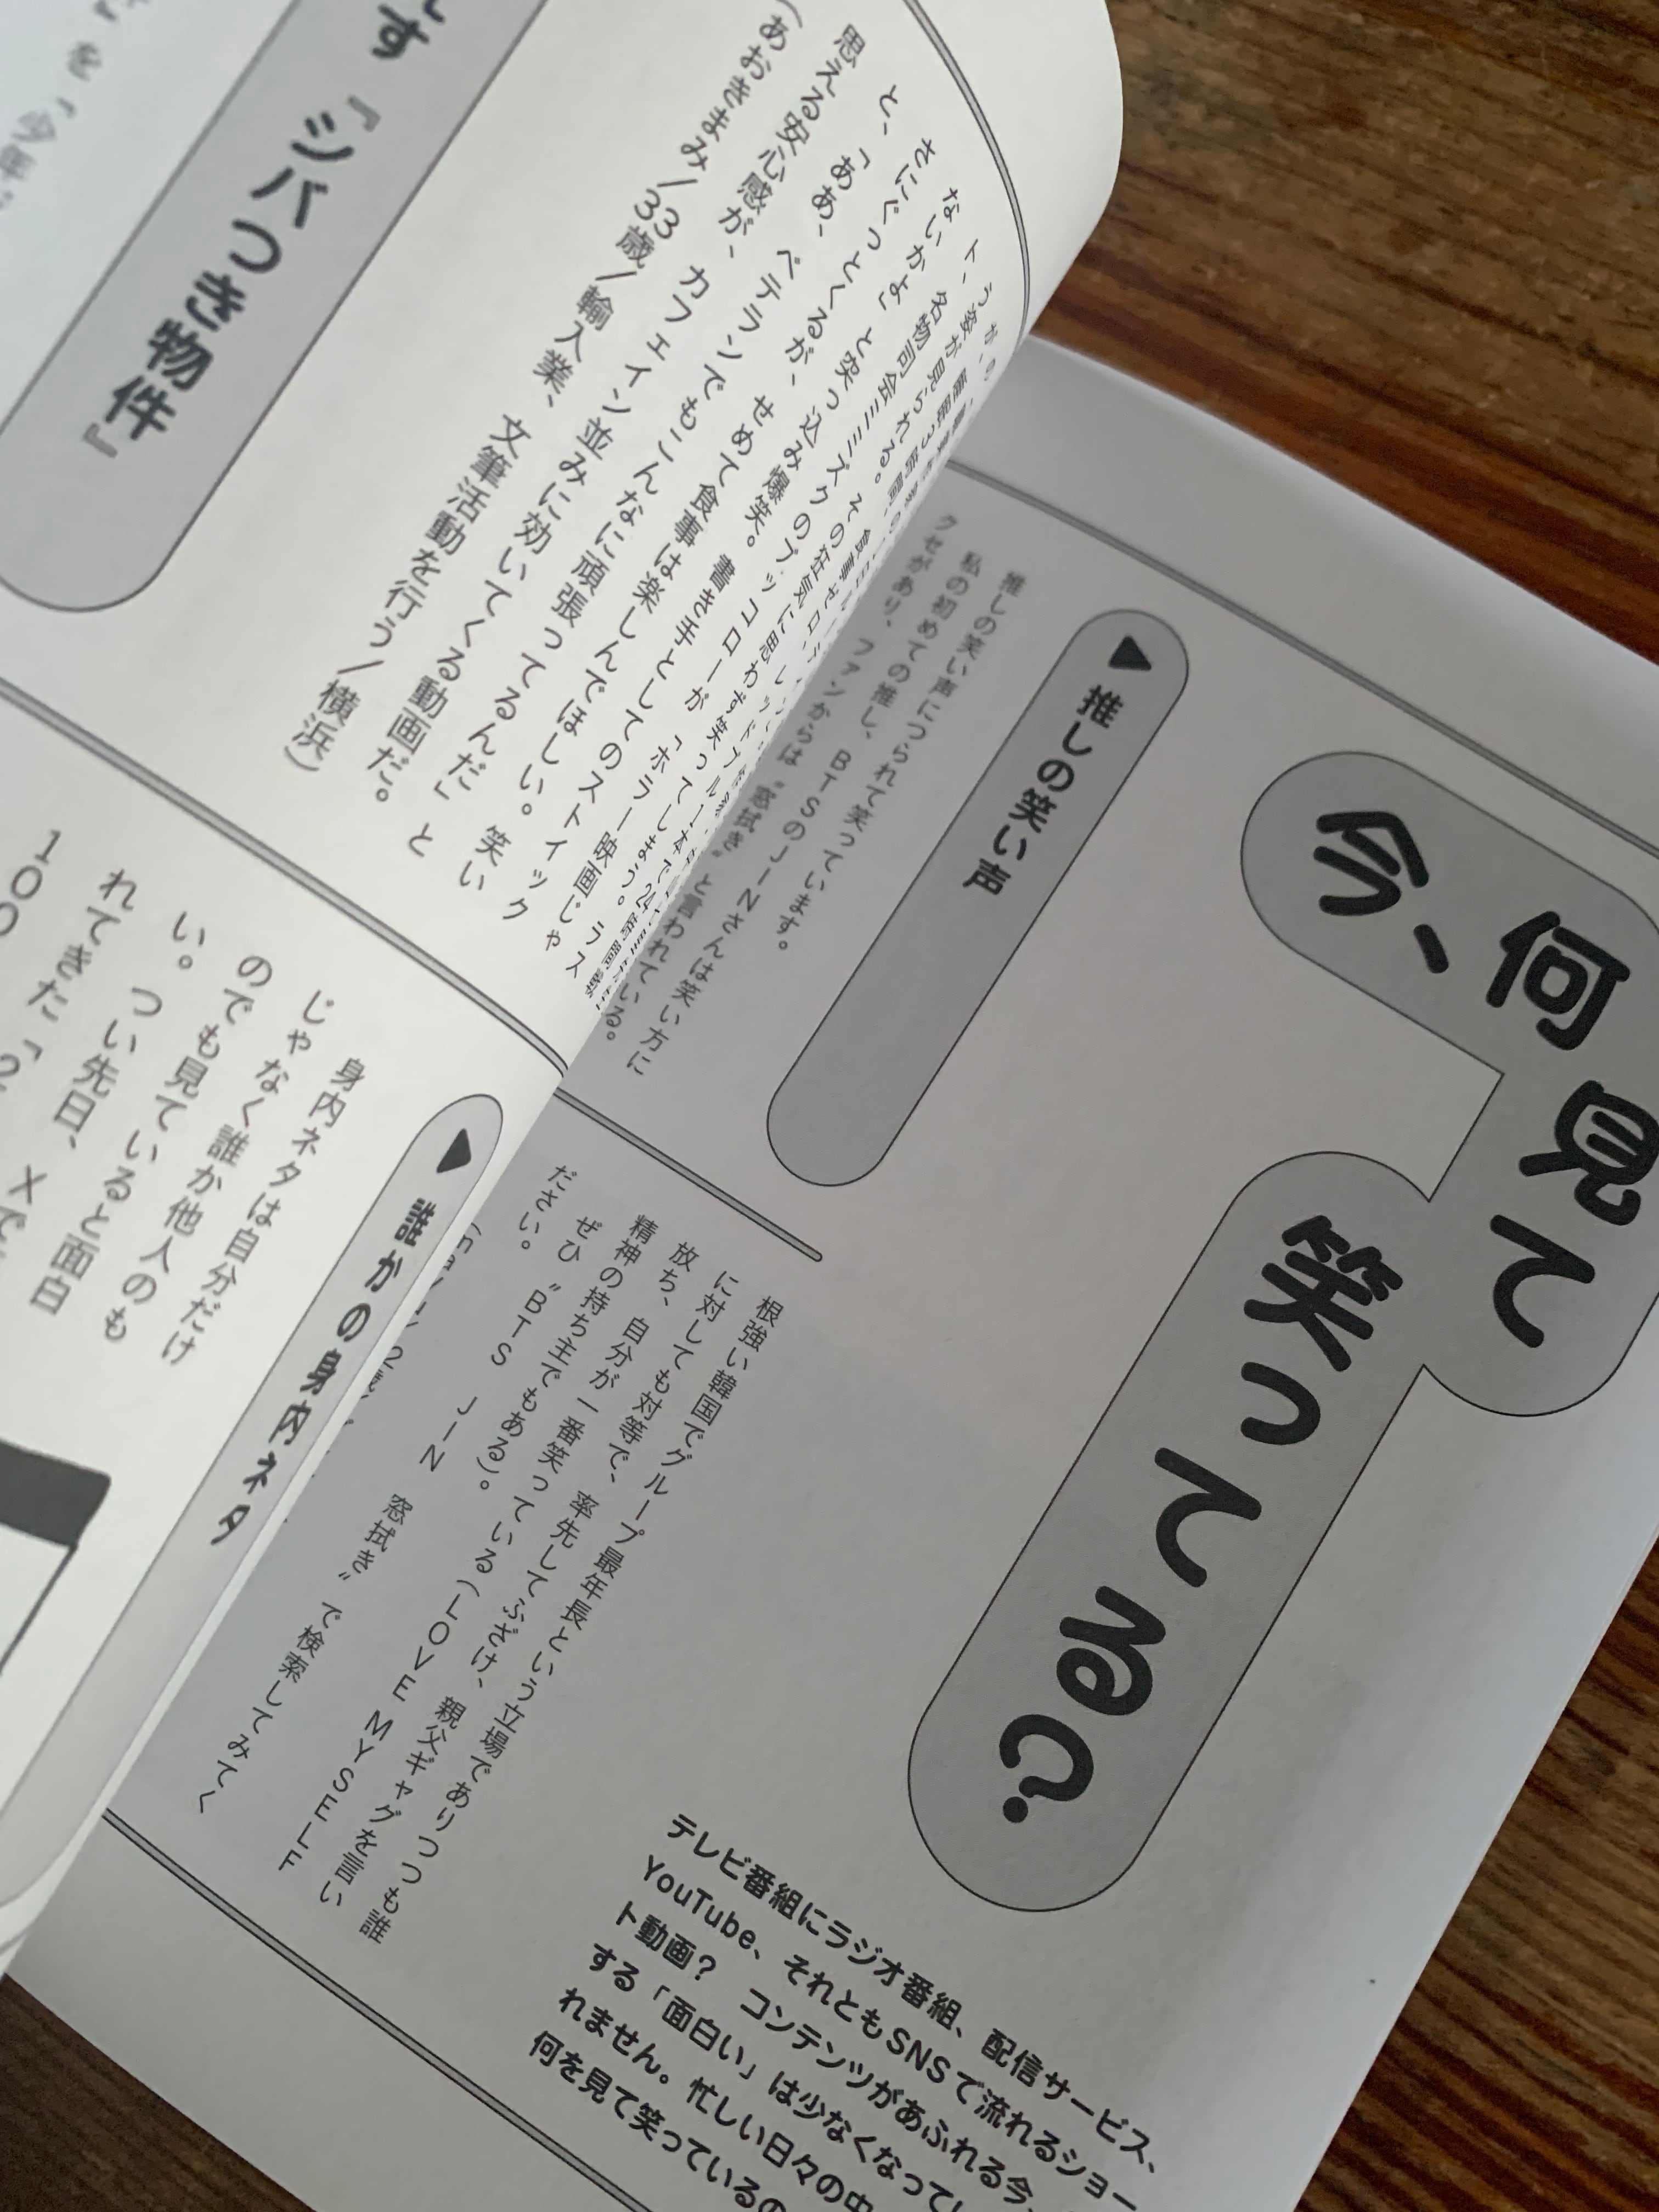 今、
何見て
笑ってる？
テレビ番組にラジオ番組、配信サービス、
YouTube、それともSNSで流れるショー
ト動画？　コンテンツがあふれる今、
する「面白い」は少なくなってい
れません。忙しい日々の中
何を見て笑っているの
▶推しの笑い声
推しの笑い声につられて笑っています。
私の初めての推し、BTSのJINさんは笑い方に
クセがあり、ファンからは〝窓拭き〟と言われている。
根強い韓国でグループ最年長という立場でありつつも誰
に対しても対等で、率先してふざけ、親父ギャグを言い
放ち、自分が一番笑っている（LOVE MYSELF
精神の持ち主でもある）。
ぜひ〝BTS　JIN　窓拭き〟で検索してみてく
ださい。
う姿が見られる。
ト、名物司会ミミズクのブッコローが「ホラー映画じゃ
ないかよ」と突っ込み爆笑。書き手としてのストイック
さにぐっとくるが、せめて食事は楽しんでほしい。笑い
と、「ああ、ベテランでもこんなに頑張ってるんだ」と
思える安心感が、カフェイン並みに効いてくる動画だ。
（あおきまみ／33歳／輸入業、文筆活動を行う／横浜）
す『シバつき物件』
▶誰かの身内ネタ
身内ネタは自分だけ
じゃなく誰か他人のも
のでも見ていると面白
い。つい先日、Xで
れてきた「2
100